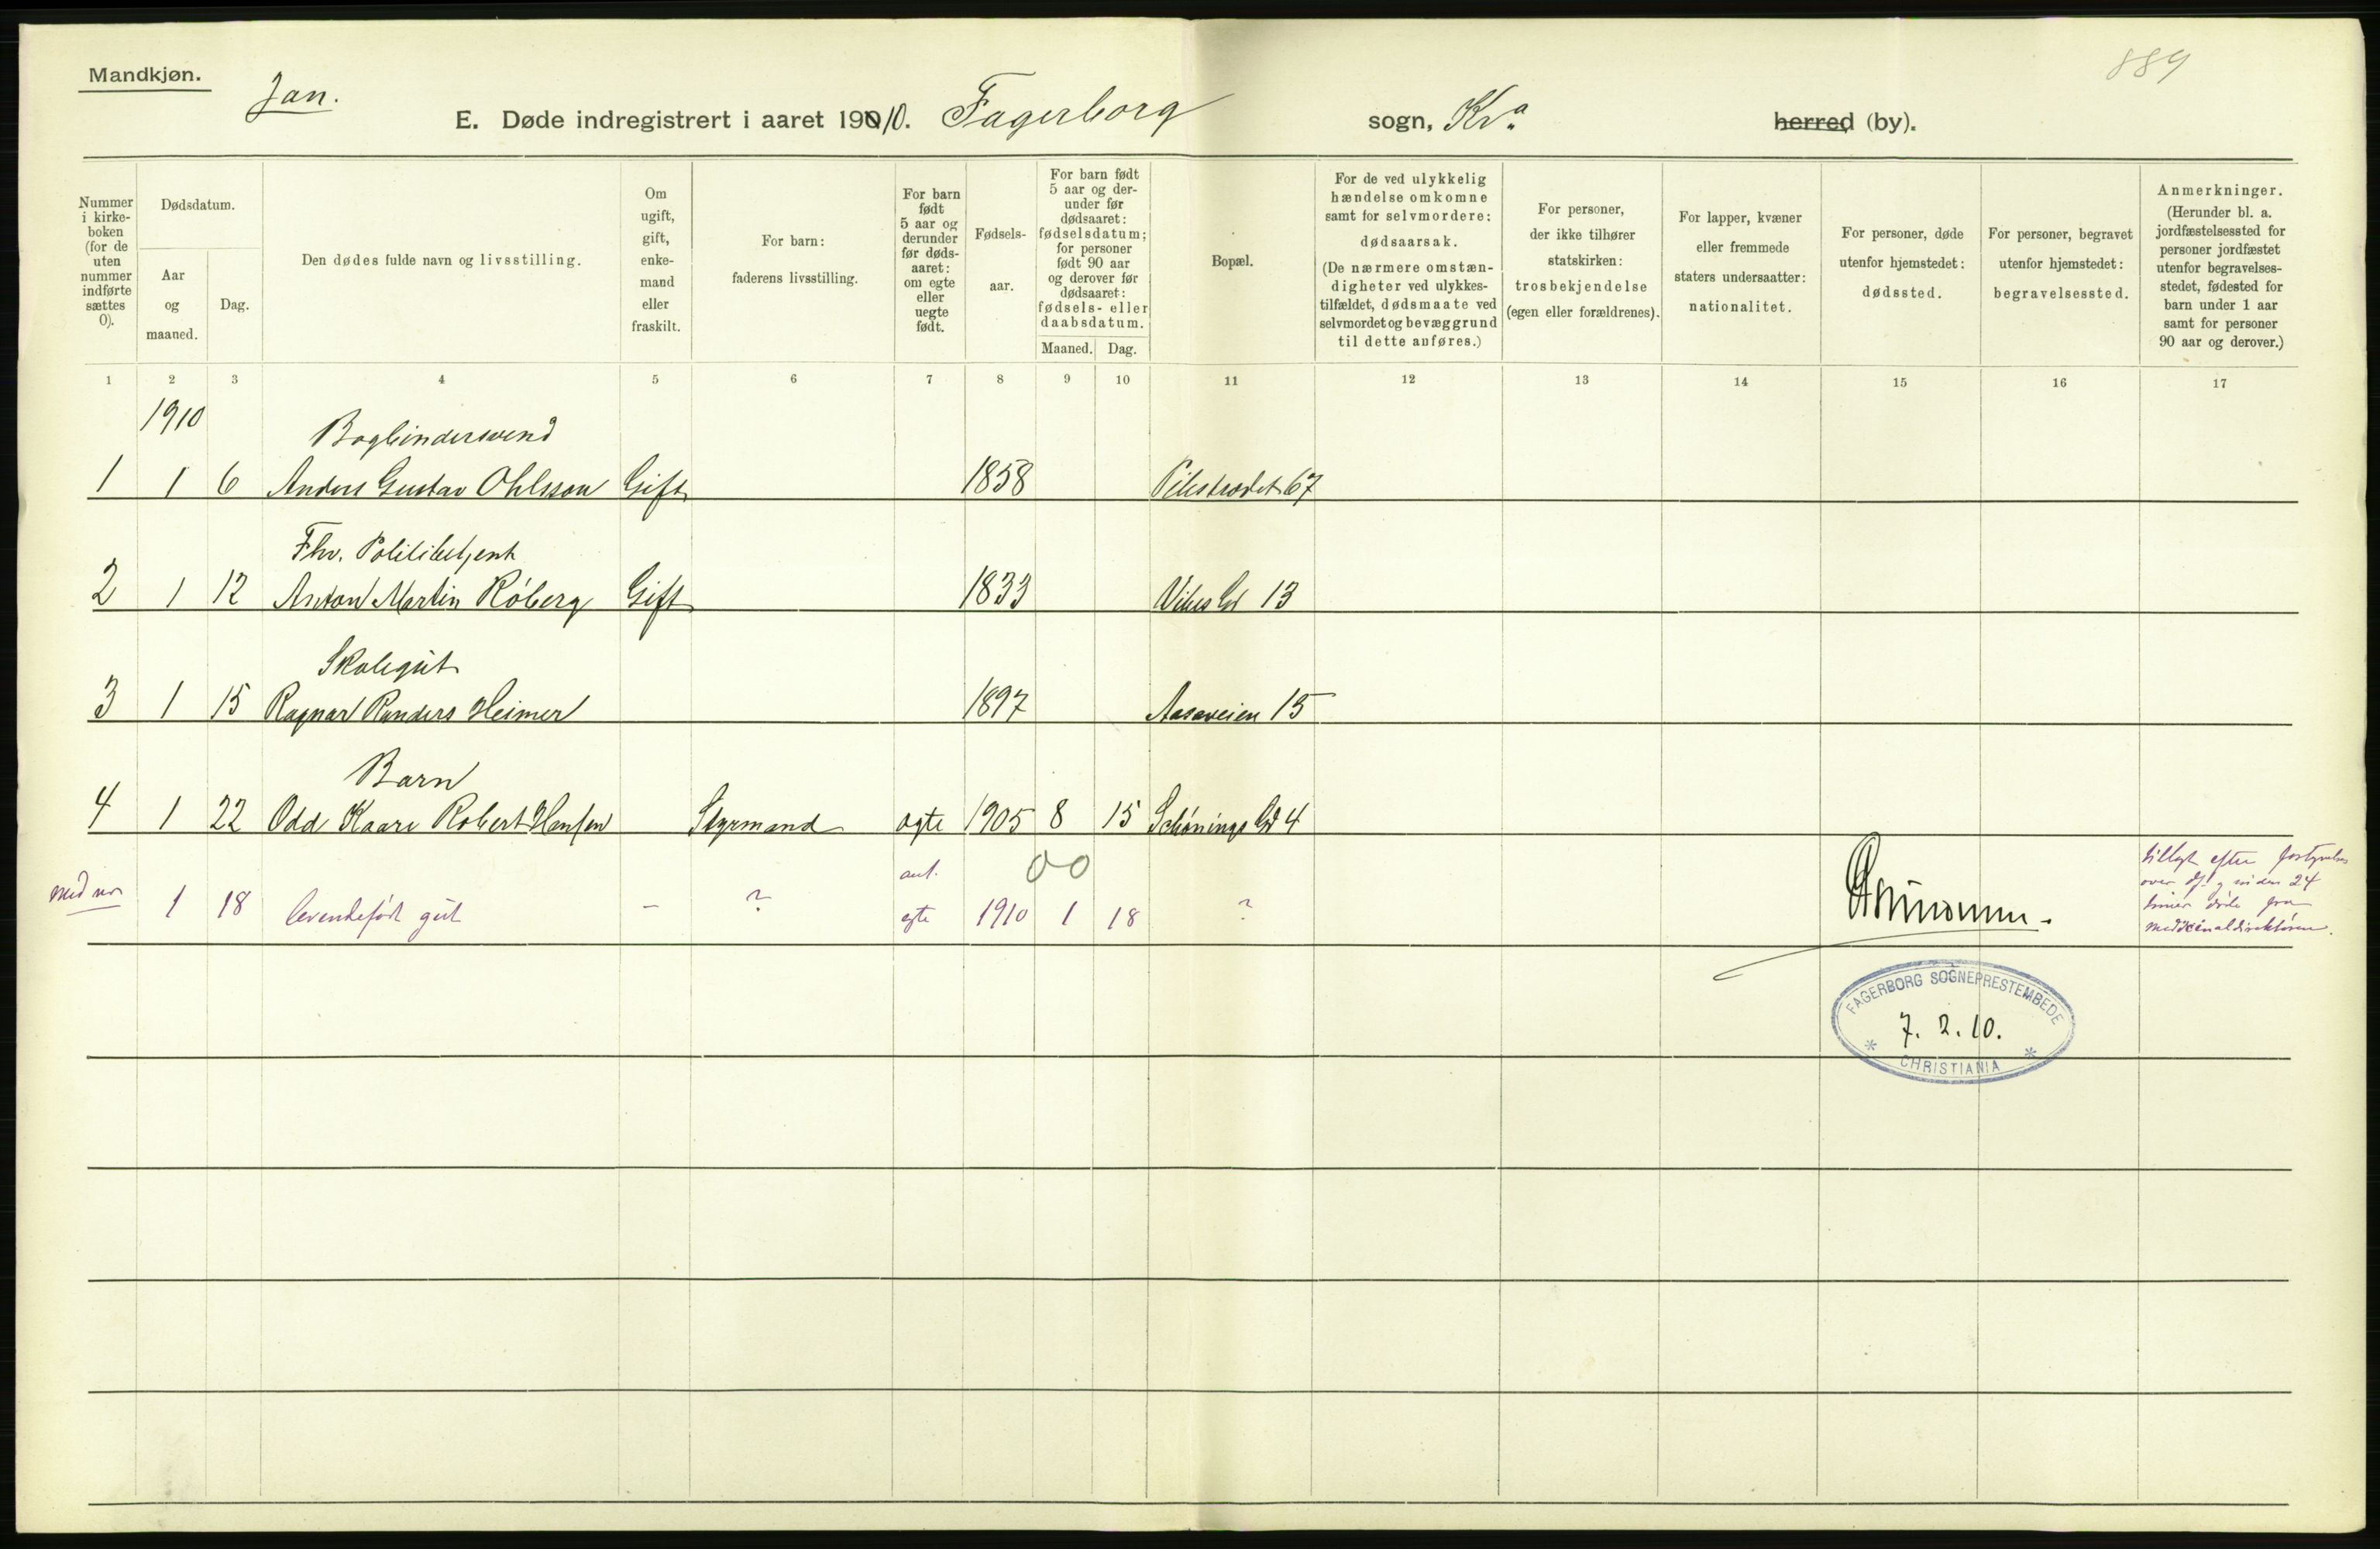 Mandkjøn.
Jan.
889
E. Døde indregistrert i aaret 1910. Fagerborg sogn, Kr.a herred (by).
Nummer i kirkeboken (for de uten nummer indførte sættes 0).
Dødsdatum.
Aar og maaned.
Dag.
Den dødes fulde navn og livsstilling.
Om ugift, gift, enkemand eller fraskilt.
For barn: faderens livsstilling.
For barn født 5 aar og derunder før dødsaaret: om egte eller uegte født.
Fødselsaar.
For barn født 5 aar og derunder før dødsaaret: fødselsdatum; for personer født 90 aar og derover før dødsaaret: fødsels- eller daabsdatum.
Maaned. Dag.
Bopæl.
For de ved ulykkelig hændelse omkomne samt for selvmordere: dødsaarsak. (De nærmere omstændigheter ved ulykkestilfældet, dødsmaate ved selvmordet og bevæggrund til dette anføres.)
For personer, der ikke tilhører statskirken: trosbekjendelse (egen eller forældrenes).
For lapper, kvæner eller fremmede staters undersaatter: nationalitet.
For personer, døde utenfor hjemstedet: dødssted.
For personer, begravet utenfor hjemstedet: begravelsessted.
Anmerkninger. (Herunder bl. a. jordfæstelsessted for personer jordfæstet utenfor begravelsesstedet, fødested for barn under 1 aar samt for personer 90 aar og derover.)
1 2 3 4 5 6 7 8 9 10 11 12 13 14 15 16 17
1910
Bogbindersvend
1 1 6 Anders Gustav Ohlsson Gift 1858 Pilestrædet 67
Fhv. Politibetjent
2 1 12 Anton Martin Röberg Gift 1833 Vibes Gd 13
Skolegut
3 1 15 Ragnar Randers Heimer 1897 Aasaveien 15
Barn
4 1 22 Odd Kaare Robert Hansen Styrmand ægte 1905 8 15 Schönings Gd 4
ant. 00
1 18 levendefødt gut - ? egte 1910 1 18 ?
24
medicinaldirektøren.
FAGERBORG SOGNEPRESTEMBEDE
7. 2. 10.
* CHRISTIANIA *